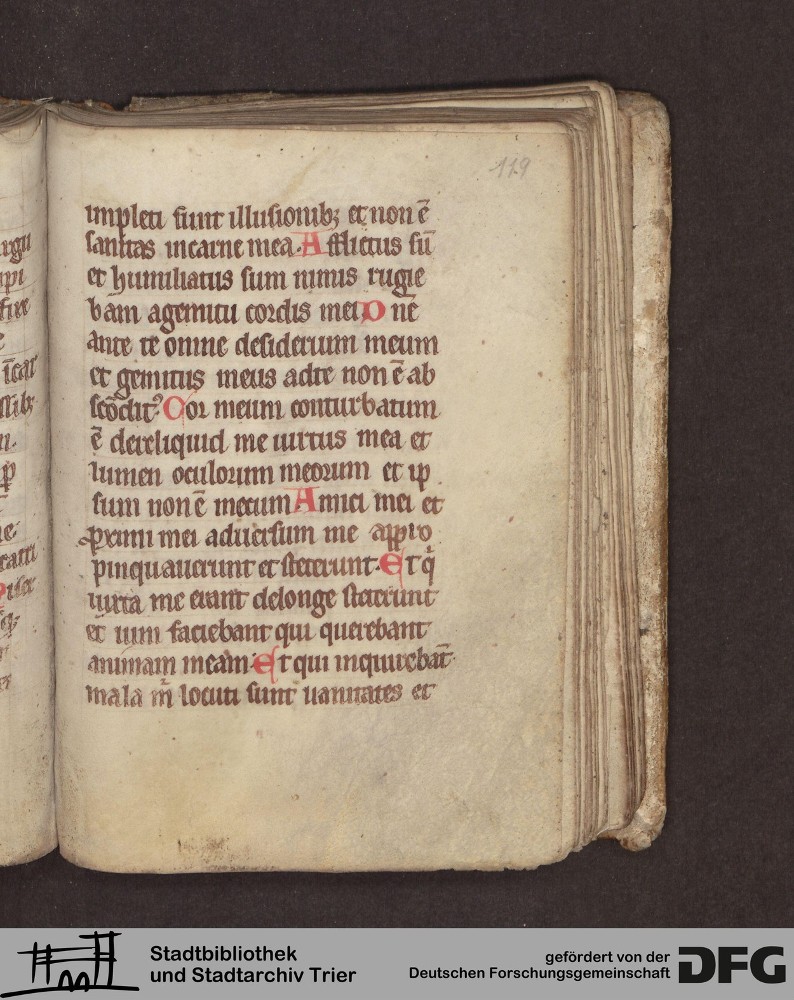 119
impleti sunt illusionibꝫ et non ē
sanitas incarne mea. Afflictus sū
et humiliatus sum nimis rugie
bam agemitu cordis mei Dn̄e
ante te omne desiderium meum
et gemitus meus adte non ē ab
scōdit⁹ Cor meum conturbatum
ē dereliquid me uirtus mea et
lumen oculorum meorum et ip
sum non ē mecum Amici mei et
ꝓximi mei aduersum me appro
pinquauerunt et steterunt. Et q̇
iuxta me erant delonge steterunt
et uim faciebant qui querebant
animam meam. Et qui inquirebāt
mala m̄ locuti sunt uanitates et
Stadtbibliothek
und Stadtarchiv Trier
gefördert von der
Deutschen Forschungsgemeinschaft
DFG